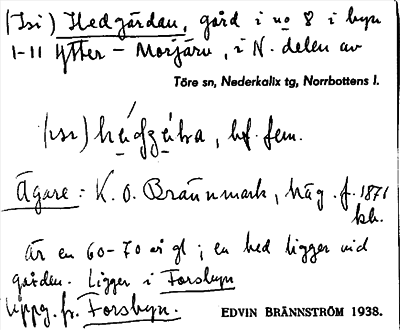 (Isi) Hedgården, gård i no 8 i byn
1-11 Ytter-Morjärv, i N. delen av
Töre sn, Nederkalix tg, Norrbottens l.
(isi) , bf. fem.
Ägare: K. O. Brännmark, häg. f. 1871
kh.
Är en 60-70 år gl; en hed ligger vid
gården. Ligger i Forsbyn
Uppg. fr. Forsbyn.
EDVIN BRÄNNSTRÖM 1938.